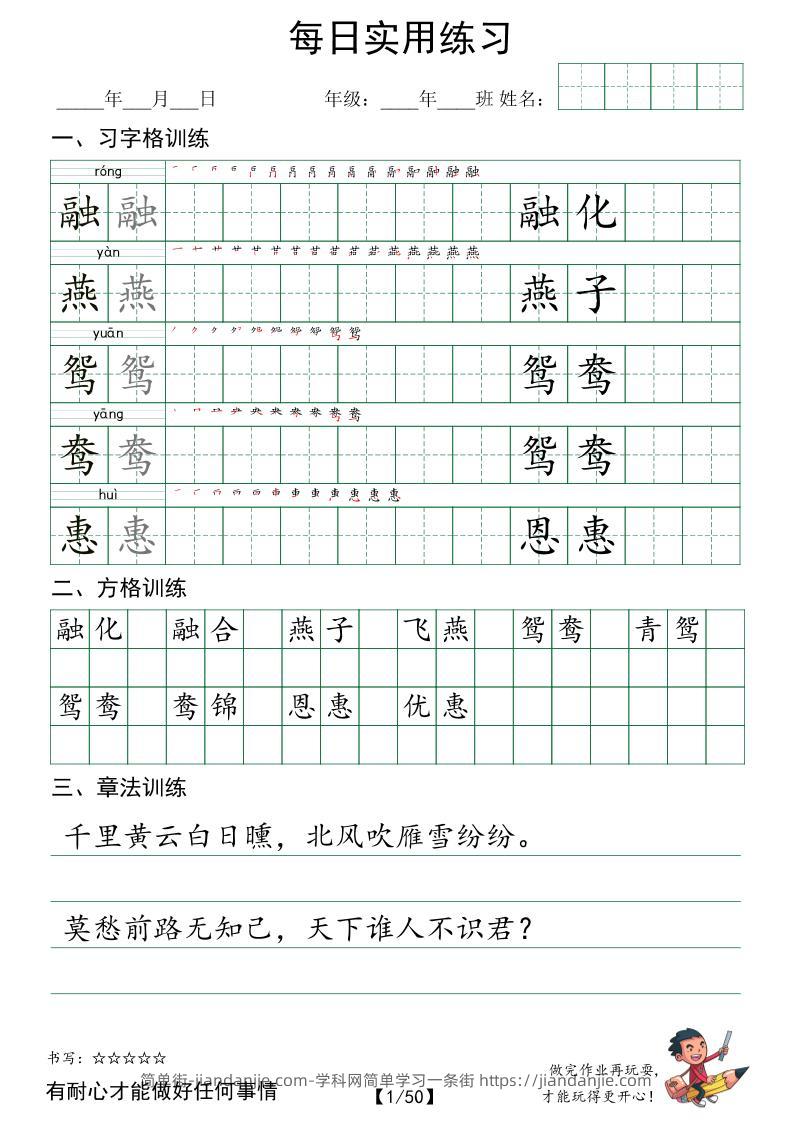 每日实用练习
_____年___月___日 年级：____年____班 姓名：
一、习字格训练
róng
融 融 融 化
yàn
燕 燕 燕 子
yuān
鸳 鸳 鸳 鸯
yāng
鸯 鸯 鸳 鸯
huì
惠 惠 恩 惠
二、方格训练
融 化 融 合 燕 子 飞 燕 鸳 鸯 青 鸳
鸳 鸯 鸯 锦 恩 惠 优 惠
三、章法训练
千里黄云白日曛，北风吹雁雪纷纷。
莫愁前路无知己，天下谁人不识君？
书写：☆☆☆☆☆
做完作业再玩耍，
简单街-jiandanjie.com-学科网简单学习一条街 https://jiandanjie.com
有耐心才能做好任何事情
【1/50】
才能玩得更开心！